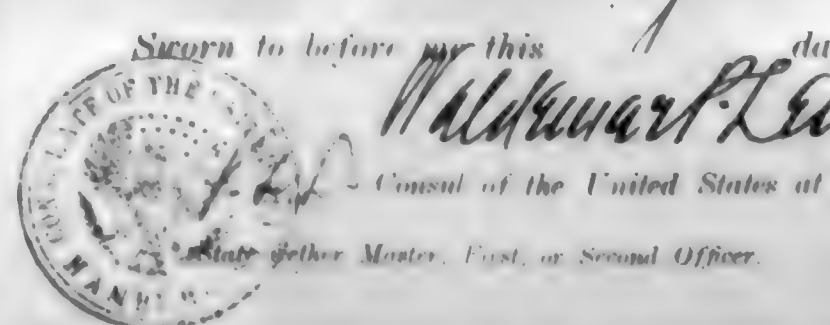 Sworn to before me this
Waldemar P.
Consul of the United States at
State Master, First, or Second Officer.
OF THE